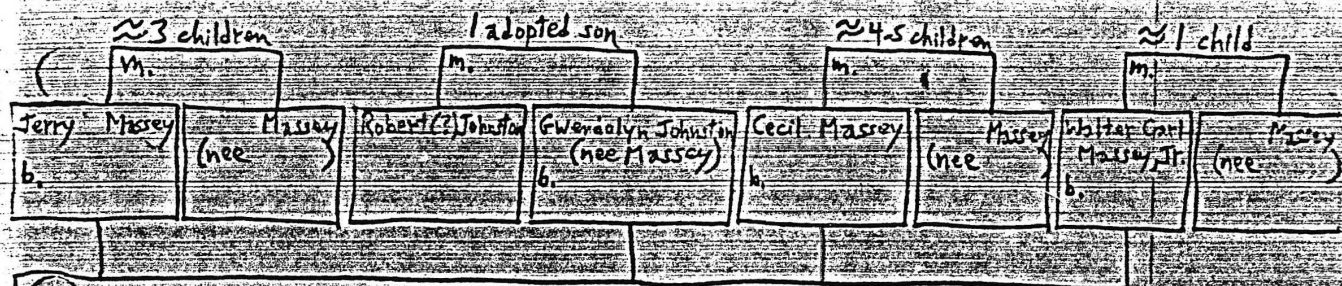 ≈3 children
1 adopted son
≈4-5 children
≈1 child
m.
m.
m.
m.
Jerry Massey
b.
Massey
(nee )
Robert(?) Johnston
Gwendolyn Johnston
(nee Massey)
b.
Cecil Massey
b.
Massey
(nee
Walter Carl
Massey, Jr.
b.
Massey
(nee